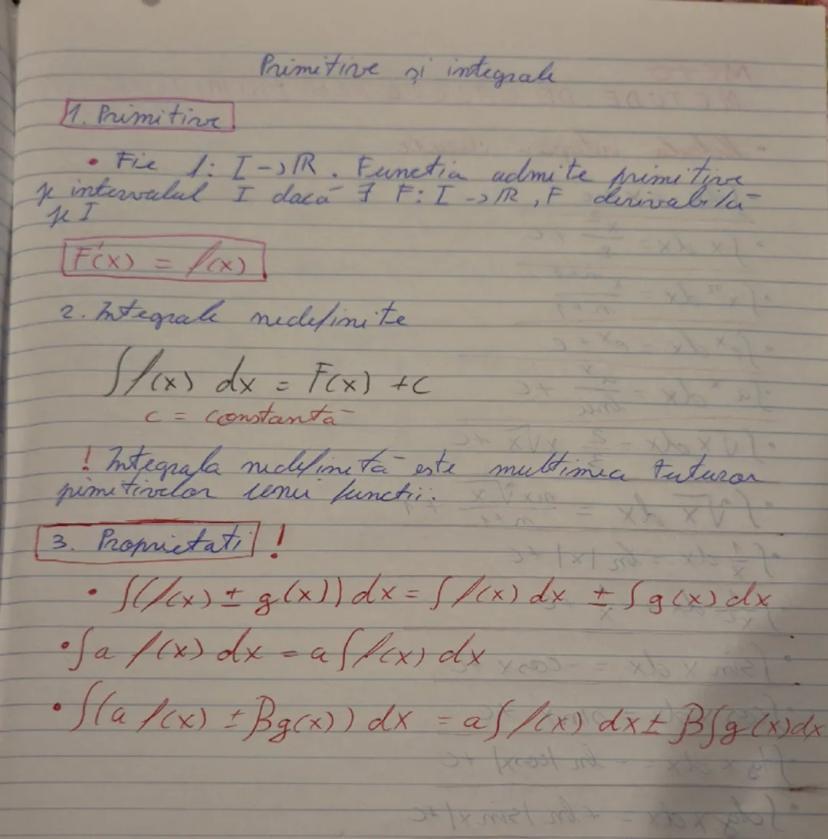 Primitive și integrale
1. Primitive
• Fie f: I → ℝ. Functia admite primitive
pe intervalul I dacă ∃ F: I → ℝ, F derivabilă
pe I
F'(x) = f(x)
2. Integrale nedefinite
∫f(x) dx = F(x) + c
c = constantă
! Integrala nedefinită este multimea tuturor
pimitivelor unei functii.
3. Proprietati !
• ∫(f(x) ± g(x)) dx = ∫f(x) dx ± ∫g(x) dx
• ∫a f(x) dx = a∫f(x) dx
• ∫(a f(x) ± βg(x)) dx = a∫f(x) dx ± β∫g(x)dx